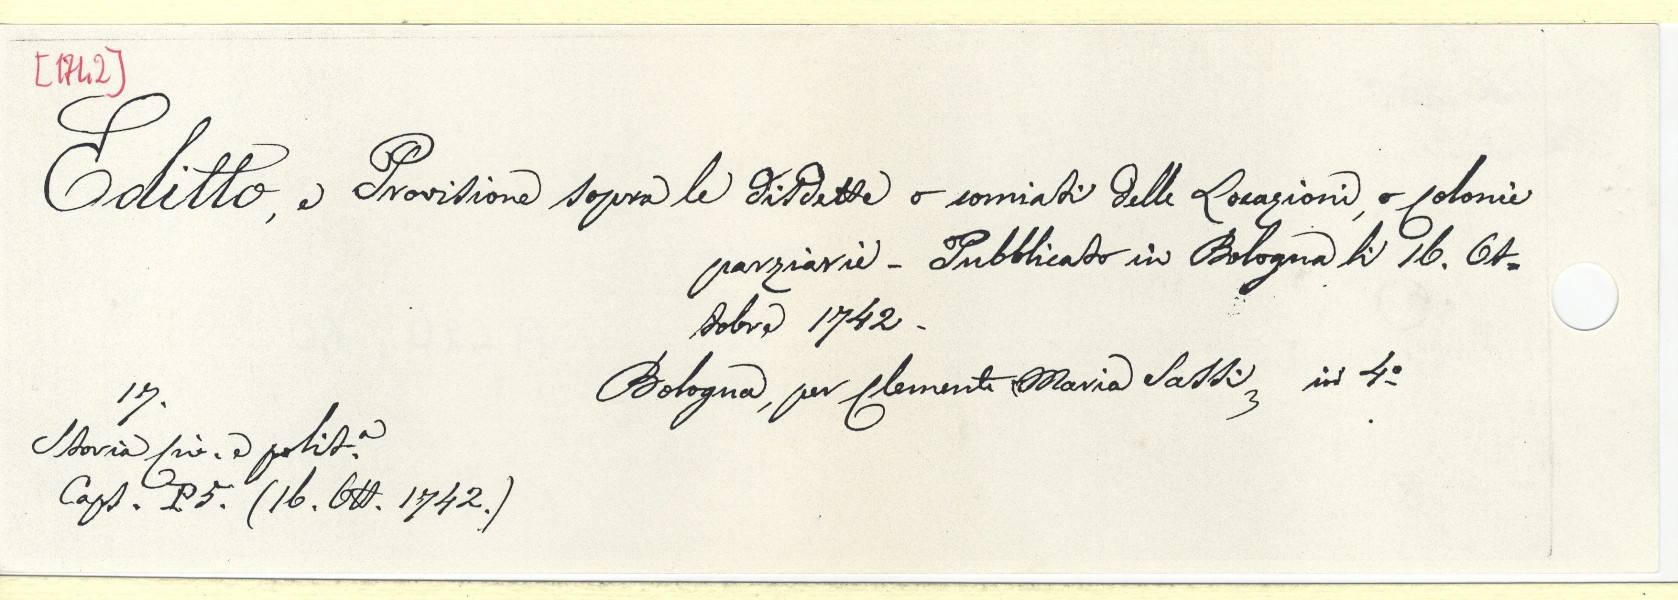 [1742]
Editto, e Provisione sopra le disdette o comiati delle Locazioni, o Colonie
parziarie - Pubblicato in Bologna li 16. Ot=
tobre 1742 -
Bologna, per Clemente Maria Sassi, in 4º
17.
Storia civ. e polit.ª
Cart. P5. (16. Ott. 1742.)